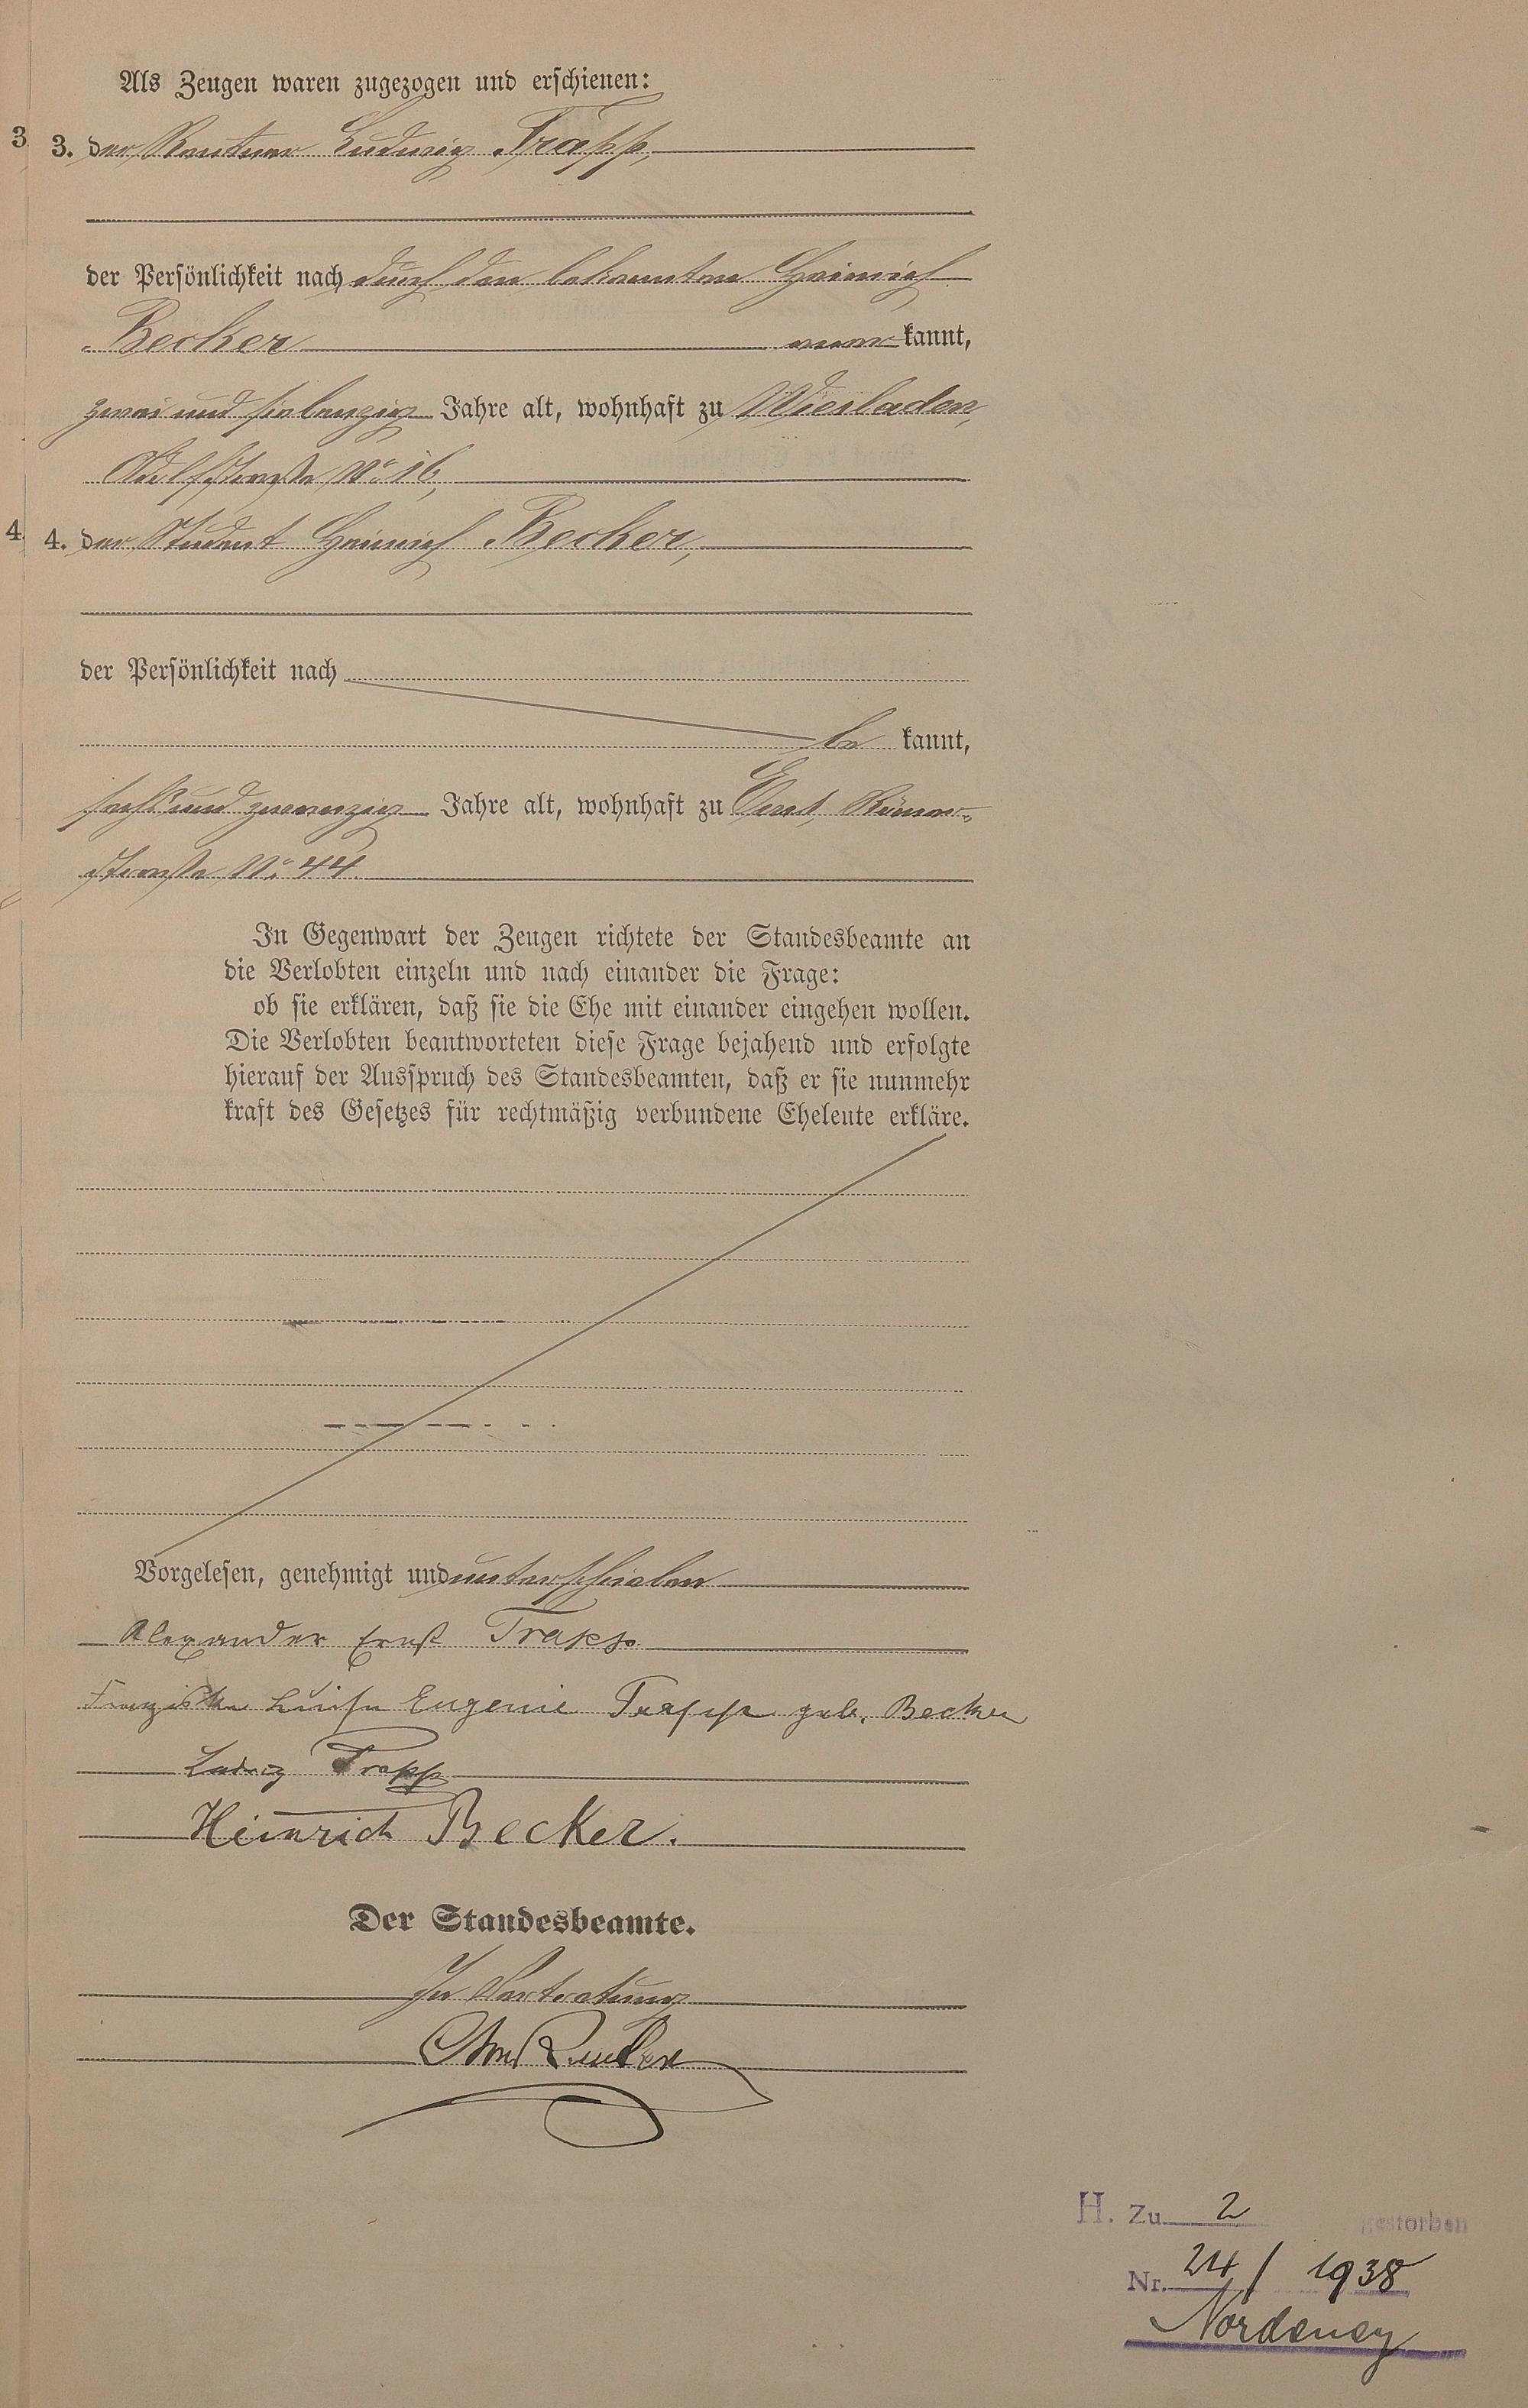 Als Zeugen waren zugezogen und erschienen:
3 3. der Rentner Ludwig Trapp,
der Persönlichkeit nach durch den bekannten Heinrich
Becker kannt,
zwei und siebenzig Jahre alt, wohnhaft zu Wiesbaden,
Adolfstraße No. 16,
4 4. der Student Heinrich Becker,
der Persönlichkeit nach
be kannt,
sechs und zwanzig Jahre alt, wohnhaft zu Ems, Römer-
straße No. 44.
In Gegenwart der Zeugen richtete der Standesbeamte an
die Verlobten einzeln und nach einander die Frage:
ob sie erklären, daß sie die Ehe mit einander eingehen wollen.
Die Verlobten beantworteten diese Frage bejahend und erfolgte
hierauf der Ausspruch des Standesbeamten, daß er sie nunmehr
kraft des Gesetzes für rechtmäßig verbundene Eheleute erkläre.
Vorgelesen, genehmigt und unterschrieben
Alexander Ernst Trapp
Franziska Luise Eugenie Trapp geb. Becker
Ludwig Trapp
Heinrich Becker.
Der Standesbeamte.
In Vertretung
H. Zu 2 gestorben
Nr. 24/ 1938
Norderney